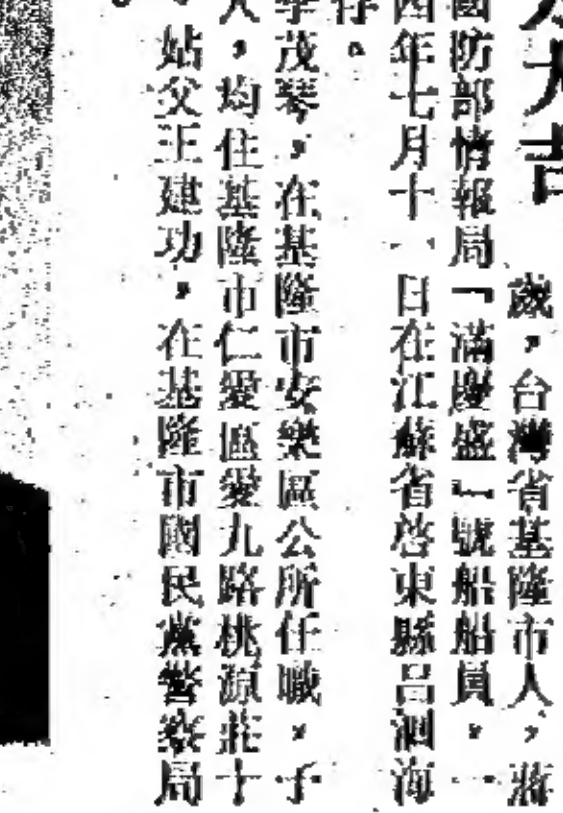 大吉
歲，台灣省基隆市人，蔣
國防部情報局「滿慶盛」號船船員。一
四年七月十一日在江蘇省啓東縣呂泗海
存。
李茂琴，在基隆市安樂區公所任職，子
人，均住基隆市仁愛區愛九路桃源莊十
姑父王建功，在基隆市國民黨警察局